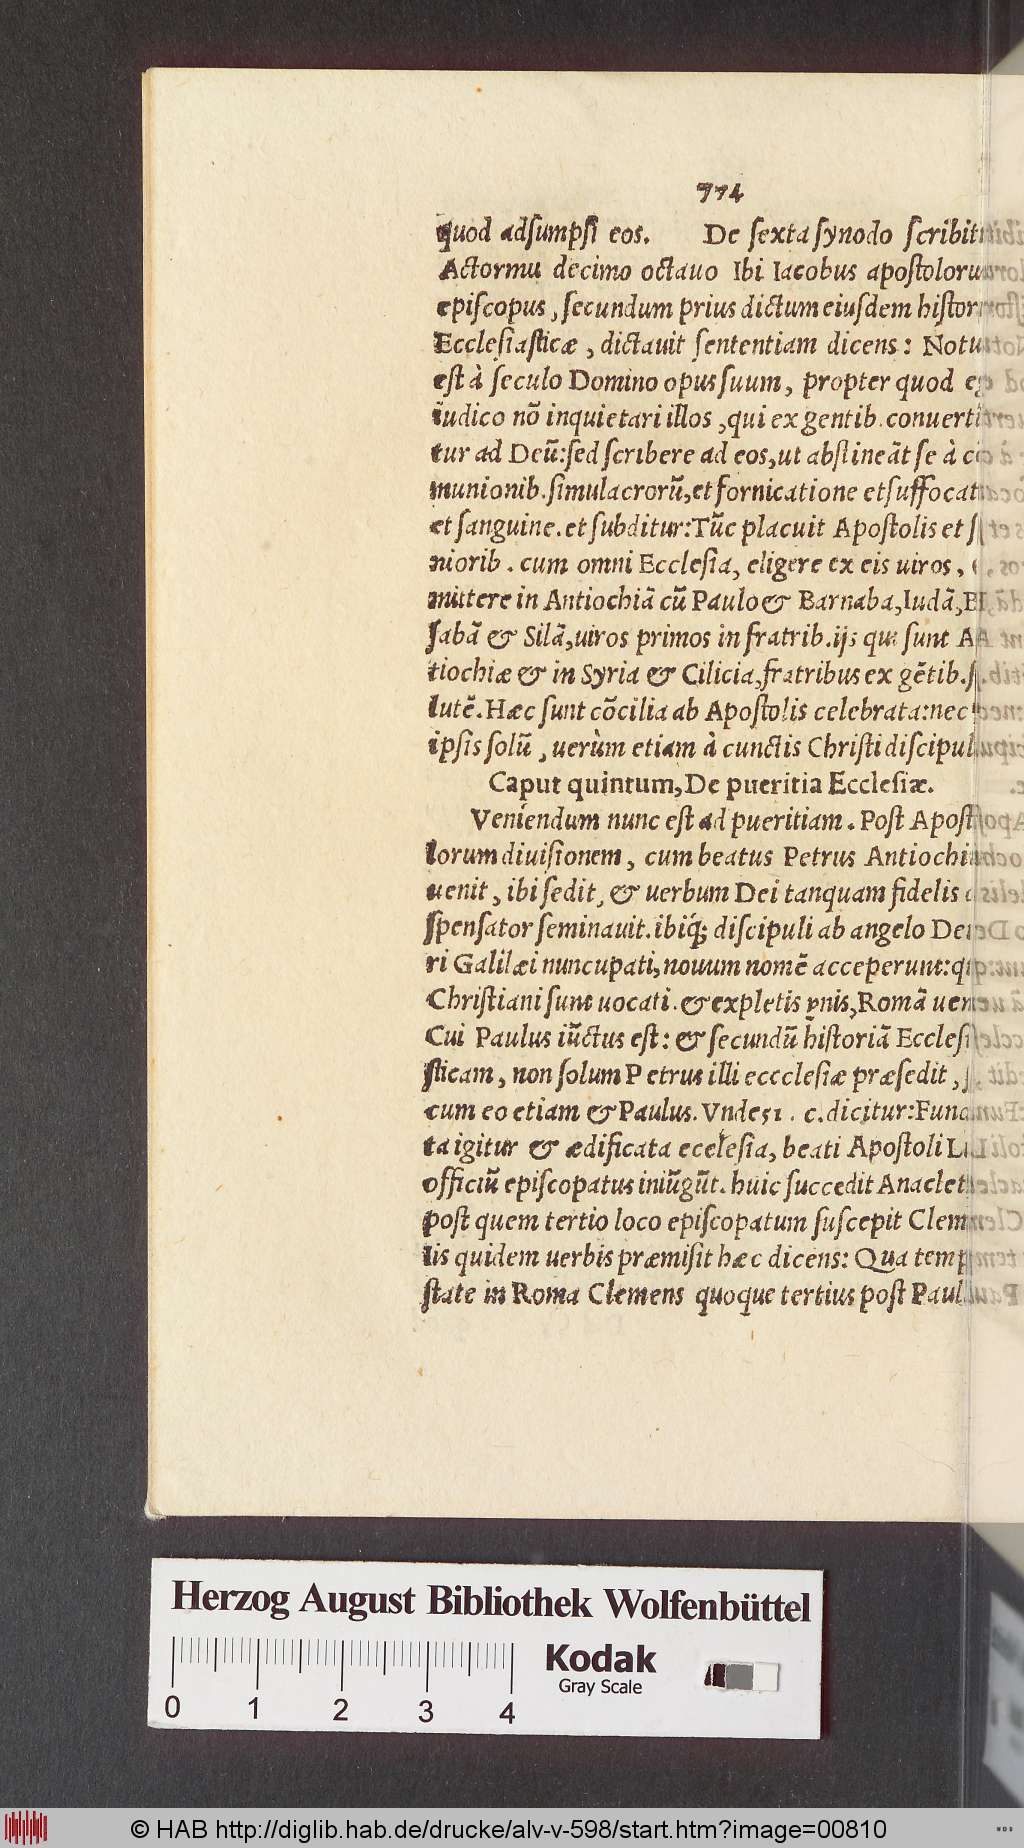 774
quod adsumpsi eos. De sexta synodo scribit
Actormu decimo octauo Ibi Iacobus apostoloru
episcopus, secundum prius dictum eiusdem histor
Ecclesiasticæ, dictauit sententiam dicens: Notu
est à seculo Domino opus suum, propter quod eg
iudico nõ inquietari illos, qui ex gentib. conuert
tur ad Deũ: sed scribere ad eos, ut abstineãt se à cõ
munionib. simulacrorũ, et fornicatione et suffocat
et sanguine. et subditur: Tũc placuit Apostolis et s
niorib. cum omni Ecclesia, eligere ex eis uiros,
mittere in Antiochiã cũ Paulo & Barnaba, Iudã, B
sabã & Silã, uiros primos in fratrib. ijs qui sunt A
tiochiæ & in Syria & Cilicia, fratribus ex gẽtib. s
lutẽ. Hæc sunt cõcilia ab Apostolis celebrata: nec
ipsis solũ, uerùm etiam à cunctis Christi discipul
Caput quintum, De pueritia Ecclesiæ.
Veniendum nunc est ad pueritiam. Post Apost
lorum diuisionem, cum beatus Petrus Antiochi
uenit, ibi sedit, & uerbum Dei tanquam fidelis
spensator seminauit. ibiq́; discipuli ab angelo De
ri Galilæi nuncupati, nouum nomẽ acceperunt: q
Christiani sunt uocati. & expletis ynis, Romã uen
Cui Paulus iũctus est: & secundũ historiã Ecclesi
sticam, non solum Petrus illi eccclesiæ præsedit, s
cum eo etiam & Paulus. Vnde 51. c. dicitur: Fund
ta igitur & ædificata ecclesia, beati Apostoli Li
officiũ episcopatus iniũgũt. huic succedit Anaclet
post quem tertio loco episcopatum suscepit Clem
iis quidem uerbis præmisit hæc dicens: Qua temp
state in Roma Clemens quoque tertius post Paul
Herzog August Bibliothek Wolfenbüttel
Kodak
Gray Scale
0 1 2 3 4
© HAB http://diglib.hab.de/drucke/alv-v-598/start.htm?image=00810